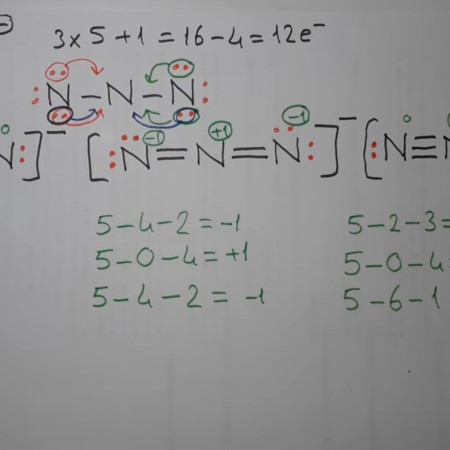 3x5+1=16-4=12e⁻
:N-N-N:
N:]⁻ [:N=N=N:]⁻ [:N≡N
-1 +1 -1
5-4-2=-1 5-2-3=
5-0-4=+1 5-0-4=
5-4-2=-1 5-6-1